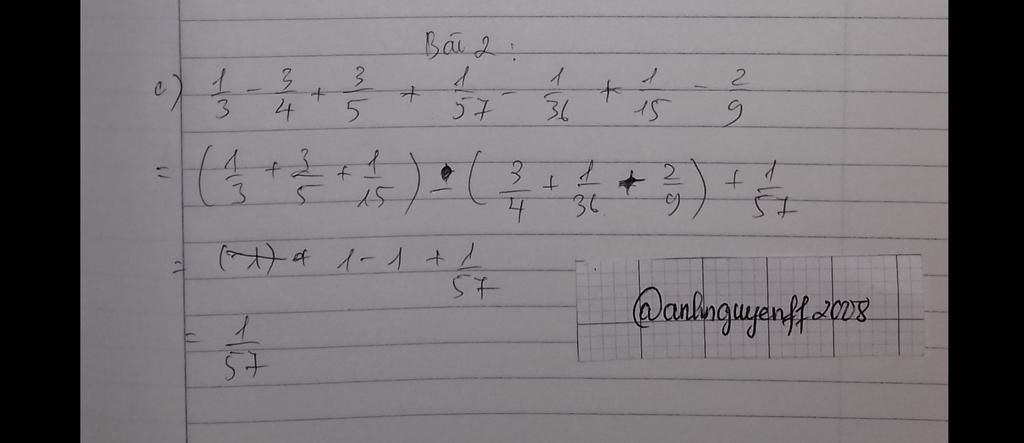 Bài 2 :
c) 1/3 - 3/4 + 3/5 + 1/57 - 1/36 + 1/15 - 2/9
= (1/3 + 3/5 + 1/15) - (3/4 + 1/36 + 2/9) + 1/57
= 1 - 1 + 1/57
= 1/57
@anhnguyenff2008